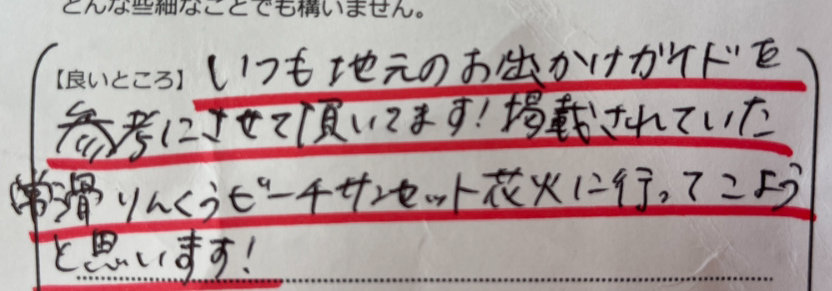 どんな些細なことでも構いません。
【良いところ】いつも地元のお出かけガイドを
参考にさせて頂いてます!掲載されていた
常滑りんくうビーチサンセット花火に行ってこよう
と思います!